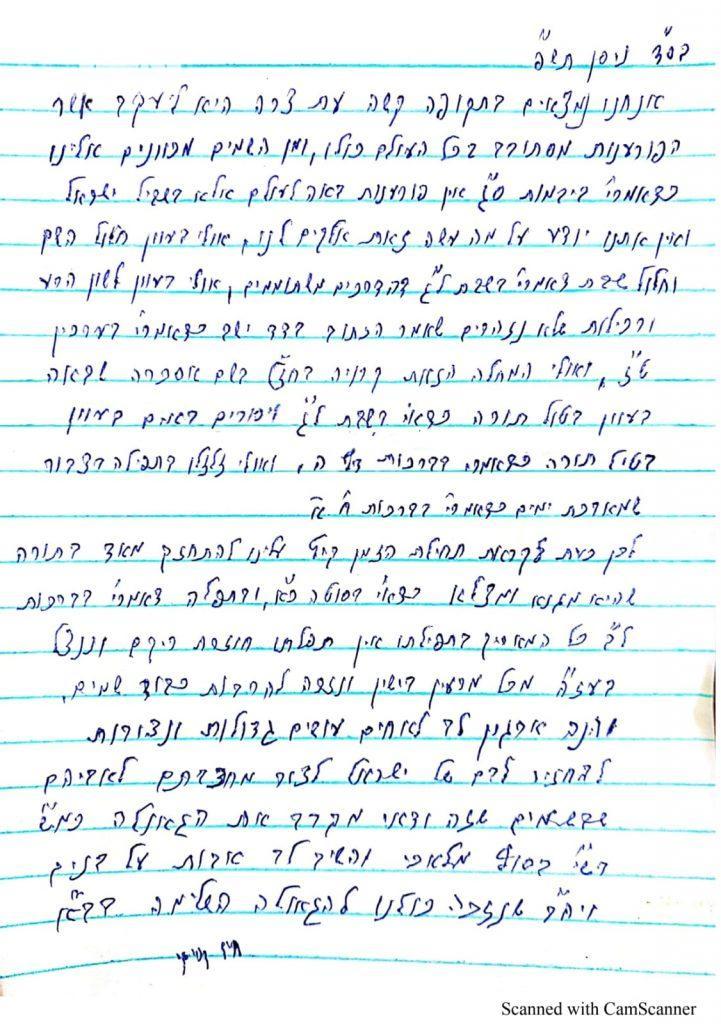 בס"ד ניסן תש"פ
אנחנו נמצאים בתקופה קשה עת צרה היא ליעקב אשר
הפורענות מסתובב בכל העולם כולו, ומן השמים מכוונים אלינו
כדאמרי' ביבמות ס"ג אין פורענות באה לעולם אלא בשביל ישראל
ואין אתנו יודע על מה עשה זאת אלקים לנו, אולי בעוון חילול השם
וחלול שבת דאמרי' בשבת ל"ג שהדרכים משתוממים, אולי בעוון לשון הרע
ורכילות שלא נזהרים שאמר הכתוב בדד ישב כדאמרי' בערכין
ט"ז, ואולי המחלה הזאת קרויה בחז"ל בשם אסכרה שבאה
בעוון בטול תורה כדאי' בשבת ל"ג באים בעוון
בטול תורה כדאמרי' בברכות דף ה', ואולי זלזלו בתפילה בצבור
שמארכת ימים כדאמרי' בברכות ח' א'
לכן כעת לקראת תחילת הזמן קיץ עלינו להתחזק מאד בתורה
שהיא מגנא ומצלא כדאי' בסוטה כ"א, ובתפלה דאמרי' בברכות
ל"ב כל המאריך בתפילתו אין תפלתו חוזרת ריקם וננצל
בעזה"י מכל מרעין בישין ונזכה להרבות כבוד שמים.
והנה ארגון לב לאחים עושים גדולות ונצורות
להחזיר לבם של ישראל לצור מחצבתם לאביהם
שבשמים שזה ודאי מקרב את הגאולה כמ"ש
רש"י בסוף מלאכי והשיב לב אבות על בנים
ויה"ר שנזכה כולנו להגאולה השלימה בב"א
חיים קניבסקי
Scanned with CamScanner